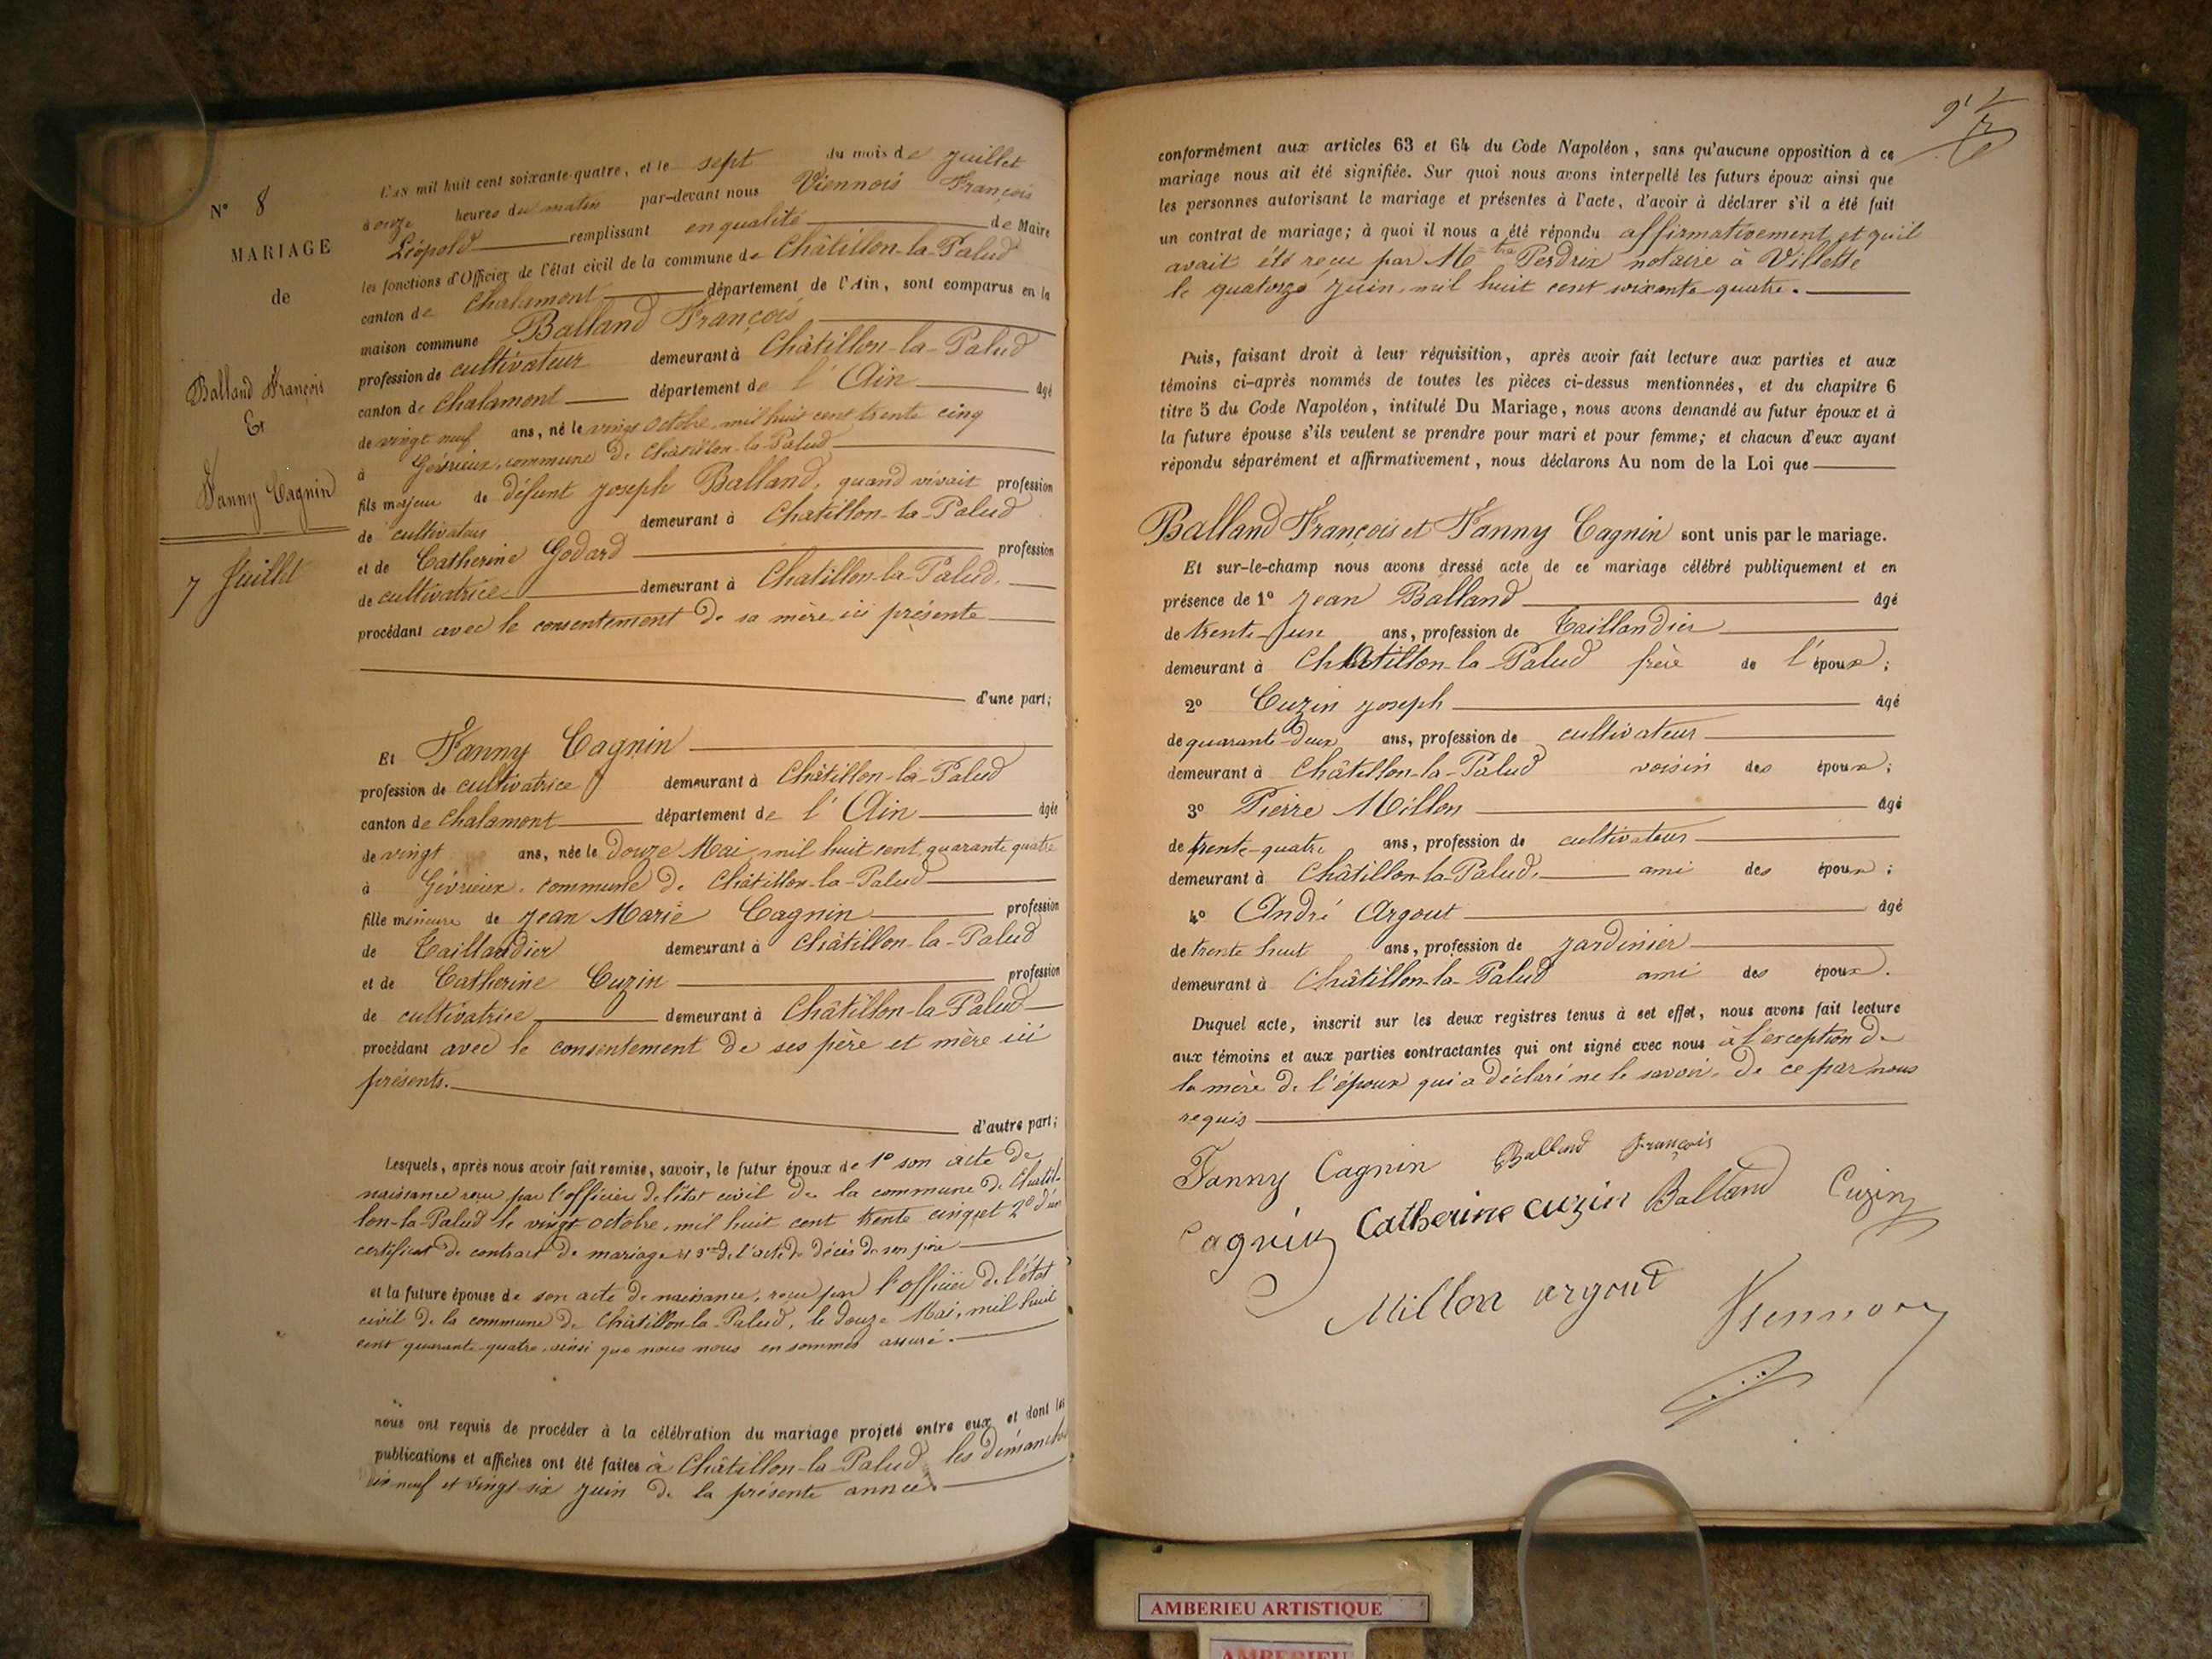 N° 8
MARIAGE
de
Balland François
Et
Fanny Cagnin
7 Juillet
L'AN mil huit cent soixante-quatre, et le sept du mois de juillet
douze heures du matin par-devant nous Viennois François
Léopold remplissant en qualité de Maire
les fonctions d'Officier de l'état civil de la commune de Châtillon-la-Palud
canton de Chalamont département de l'Ain, sont comparus en la
maison commune Balland François
profession de cultivateur demeurant à Châtillon-la-Palud
canton de Chalamont département de l'Ain âgé
de vingt neuf ans, né le vingt octobre, mil huit cent trente cinq
à Gévrieux, commune de Châtillon-la-Palud
fils majeur de défunt joseph Balland, quand vivait profession
de cultivateur demeurant à Chatillon-la-Palud
et de Catherine Godard profession
de cultivatrice demeurant à Chatillon-la-Palud.
procédant avec le consentement de sa mère ici présente
d'une part;
Et Fanny Cagnin
profession de cultivatrice demeurant à Châtillon-la-Palud
canton de Chalamont département de l'Ain âgée
de vingt ans, née le douze Mai mil huit cent quarante quatre
à Gévrieux, commune de Châtillon-la-Palud
fille mineure de jean Marie Cagnin profession
de Taillandier demeurant à Châtillon-la-Palud
et de Catherine Cuzin profession
de cultivatrice demeurant à Châtillon-la-Palud
procédant avec le consentement de ses père et mère ici
présents.
d'autre part;
Lesquels, après nous avoir fait remise, savoir, le futur époux de 1° son acte de
naissance reçu par l'officier de l'état civil de la commune de Chatil-
lon-la-Palud le vingt octobre, mil huit cent trente cinq et 2° d'un
certificat de contrat de mariage et 3° de l'acte de décès de son père
et la future épouse de son acte de naissance, reçu par l'officier de l'état
civil de la commune de Châtillon-la-Palud, le douze Mai, mil huit
cent quarante-quatre, ainsi que nous nous en sommes assuré.
nous ont requis de procéder à la célébration du mariage projeté entre eux et dont les
publications et affiches ont été faites à Châtillon-la-Palud les dimanches
dix neuf et vingt-six juin de la présente année.
conformément aux articles 63 et 64 du Code Napoléon, sans qu'aucune opposition à ce
mariage nous ait été signifiée. Sur quoi nous avons interpellé les futurs époux ainsi que
les personnes autorisant le mariage et présentes à l'acte, d'avoir à déclarer s'il a été fait
un contrat de mariage; à quoi il nous a été répondu affirmativement et qu'il
avait été reçu par Mtre Perdrix notaire à Villette
le quatorze juin, mil huit cent soixante quatre.
Puis, faisant droit à leur réquisition, après avoir fait lecture aux parties et aux
témoins ci-après nommés de toutes les pièces ci-dessus mentionnées, et du chapitre 6
titre 5 du Code Napoléon, intitulé Du Mariage, nous avons demandé au futur époux et à
la future épouse s'ils veulent se prendre pour mari et pour femme; et chacun d'eux ayant
répondu séparément et affirmativement, nous déclarons Au nom de la Loi que
Balland François et Fanny Cagnin sont unis par le mariage.
Et sur-le-champ nous avons dressé acte de ce mariage célébré publiquement et en
présence de 1° jean Balland âgé
de trente-un ans, profession de Taillandier
demeurant à Châtillon-la-Palud frère de l'époux;
2° Cuzin joseph âgé
de quarante-deux ans, profession de cultivateur
demeurant à Châtillon-la-Palud voisin des époux;
3° Pierre Millon âgé
de trente-quatre ans, profession de cultivateur
demeurant à Châtillon-la-Palud. ami des époux;
4° André Argout âgé
de trente huit ans, profession de jardinier
demeurant à Châtillon-la-Palud ami des époux.
Duquel acte, inscrit sur les deux registres tenus à cet effet, nous avons fait lecture
aux témoins et aux parties contractantes qui ont signé avec nous à l'exception de
la mère de l'époux qui a déclaré ne le savoir, de ce par nous
requis
Fanny Cagnin Balland François
Cagnin Catherine cuzin Balland Cuzin
Millon argout Viennois
AMBERIEU ARTISTIQUE
AMBERIEU